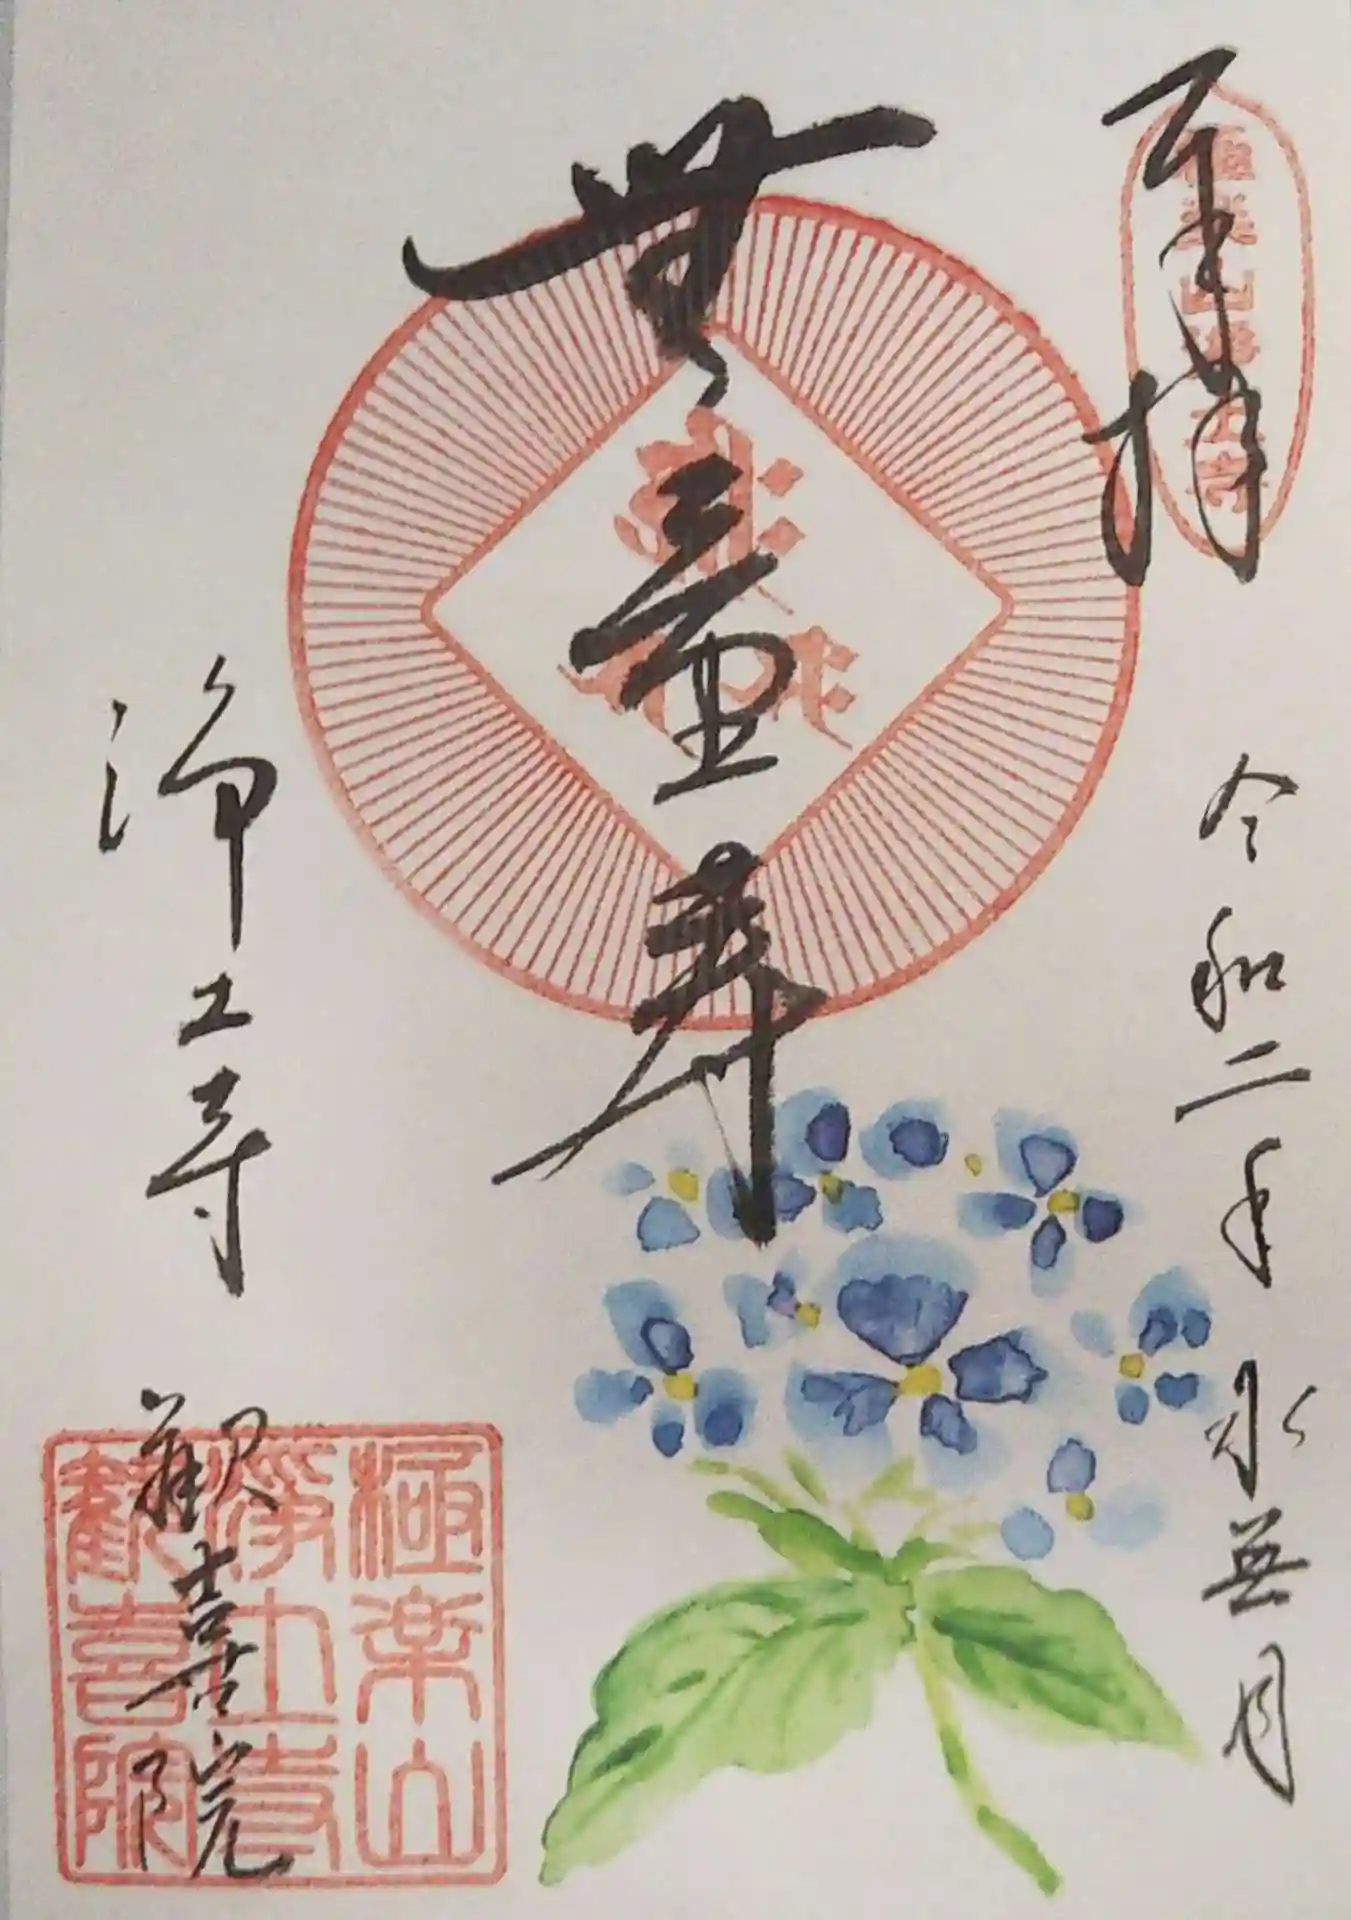 奉拝
極楽山浄土寺
令和二年 水無月
無量寿
浄土寺 歓喜院
極楽山
浄土寺
歓喜院